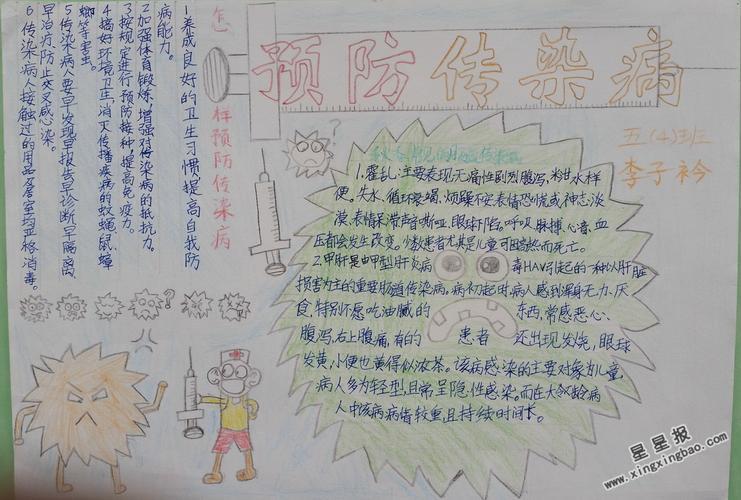 预防传染病
五(4)班
李子衿
怎样预防传染病
1养成良好的卫生习惯提高自我防
病能力。
2加强体育锻炼,增强对传染病的抵抗力。
3按规定进行预防接种提高免疫力。
4搞好环境卫生,消灭传播疾病的蚊蝇鼠蟑
螂等害虫。
5传染病人要早发现早报告早诊断早隔离
早治疗,防止交叉感染。
6传染病人接触过的用品及居室均严格消毒。
常见的肠道传染病
1.霍乱:主要表现无痛性剧烈腹泻,粉甘水样
便,失水,循环衰竭,烦躁不安表情恐慌或神志淡
漠,表情呆滞声音嘶哑,眼球下陷。呼吸、脉搏、心音、血
压都会发生改变。少数患者尤其是儿童可因衰竭而死亡。
2.甲肝是由甲型肝炎病毒HAV引起的一种以肝脏
损害为主的重要肠道传染病,病初起时,病人感到浑身无力、厌
食,特别不愿吃油腻的东西,常感恶心、
腹泻,右上腹痛,有的患者还出现发烧,眼球
发黄,小便也黄得似浓茶。该病感染的主要对象为儿童,
病人多为轻型,且常呈隐性感染。而在大令龄病
人中该病病情较重,且持续时间长。
?
?
星星报
www.xingxingbao.com